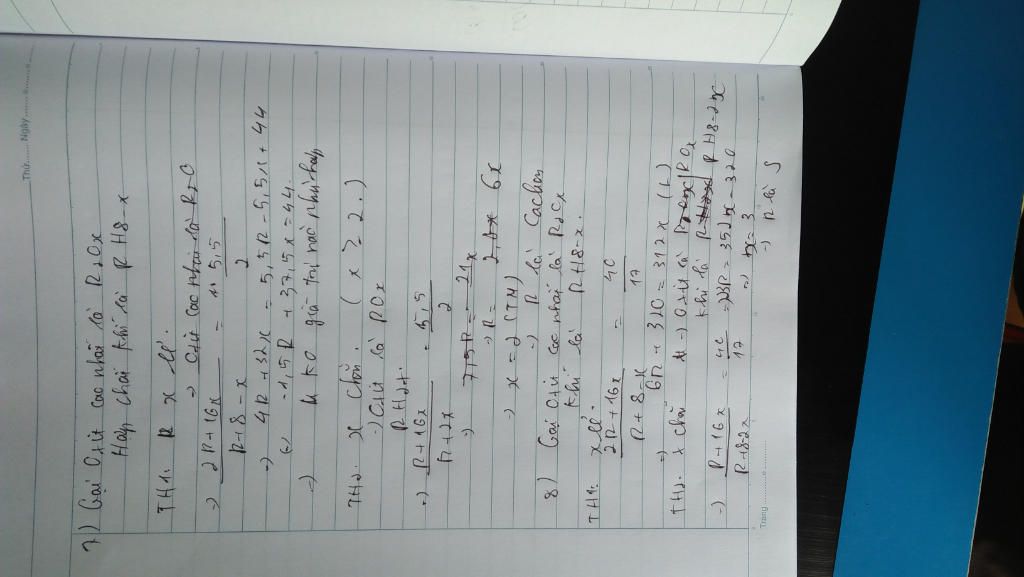 Thứ....... Ngày.........
7) Gọi Oxit cao nhất là R2Ox
Hợp chất khí là RH8-x
TH1: R x lẻ.
=> Oxit cao nhất là R2O
=> 2R+16x / R+8-x = 5,5 / 2
=> 4R+32x = 5,5R-5,5x+44
<=> -1,5R+37,5x=44.
=> ko giá trị nào phù hợp
TH2: x chẵn. (x ≥ 2.)
=> Oxit là ROx
RH2x.
=> R+16x / R+2x = 5,5 / 2
=> 7,5R = 21x
=> R = 6x
=> x=2 (TM)
=> R là Cacbon
8) Gọi Oxit cao nhất là R2Ox
Khí là RH8-x.
TH1: x lẻ.
2R+16x / R+8-x = 40 / 17
=> 6R+320=312x (L)
TH2: x chẵn => Oxit là ROx
Khí là RH8-2x
=> R+16x / R+8-2x = 40 / 17 => 23R=352x-320
=> x=3
=> R là S
Trang